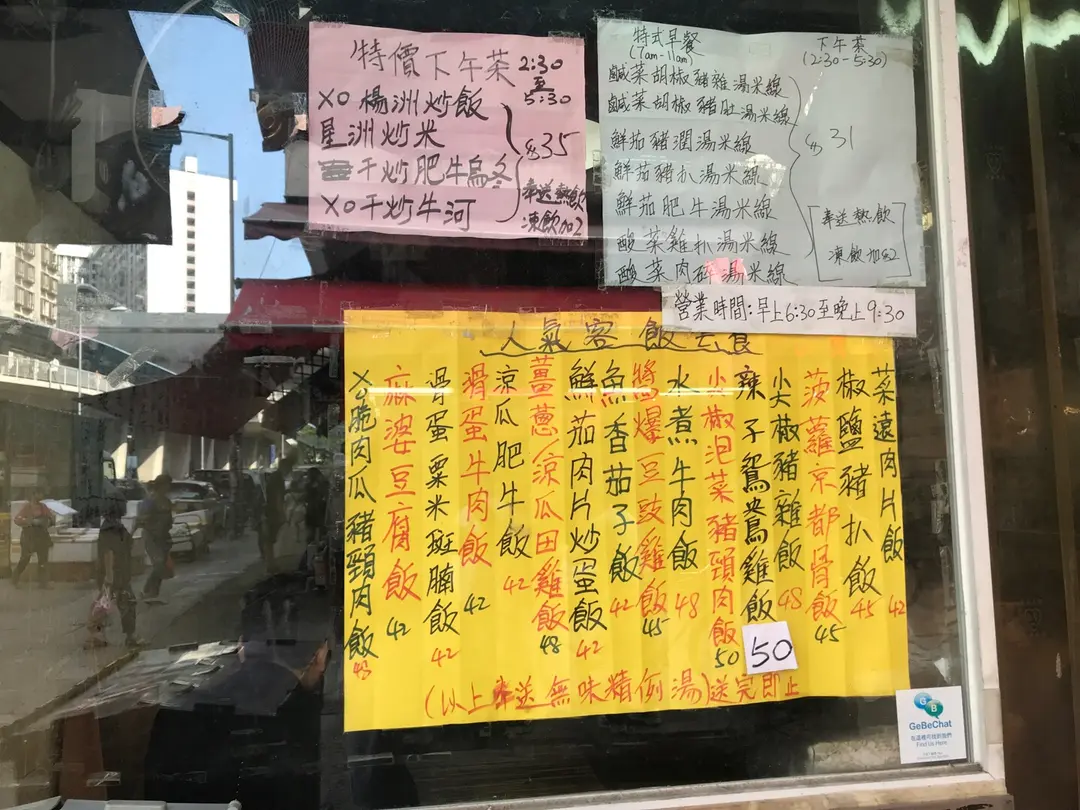 特價下午茶 2:30
至
5:30
XO 楊洲炒飯
星洲炒米
干炒肥牛烏冬
XO干炒牛河
$35
奉送熱飲
凍飲加2
特式早餐
(7am-11am)
下午茶
(2:30-5:30)
鹹菜胡椒豬雜湯米線
鹹菜胡椒豬肚湯米線
鮮茄豬潤湯米線
鮮茄豬扒湯米線
鮮茄肥牛湯米線
酸菜雞扒湯米線
酸菜肉碎湯米線
$31
奉送熱飲
凍飲加$2
營業時間:早上6:30至晚上9:30
人氣客飯去食
菜遠肉片飯 42
椒鹽豬扒飯 45
菠蘿京都骨飯 45
尖椒豬雜飯 48
辣子鴛鴦雞飯 50
尖椒泡菜豬頸肉飯 50
水煮牛肉飯 48
醬爆豆豉雞飯 45
魚香茄子飯 42
鮮茄肉片炒蛋飯 42
薑蔥/涼瓜田雞飯 48
涼瓜肥牛飯 42
滑蛋牛肉飯 42
滑蛋粟米斑腩飯 42
麻婆豆腐飯 42
XO脆肉瓜豬頸肉飯 48
(以上奉送無味精例湯)送完即止
GeBeChat
在這裡可找到我們
Find Us Here